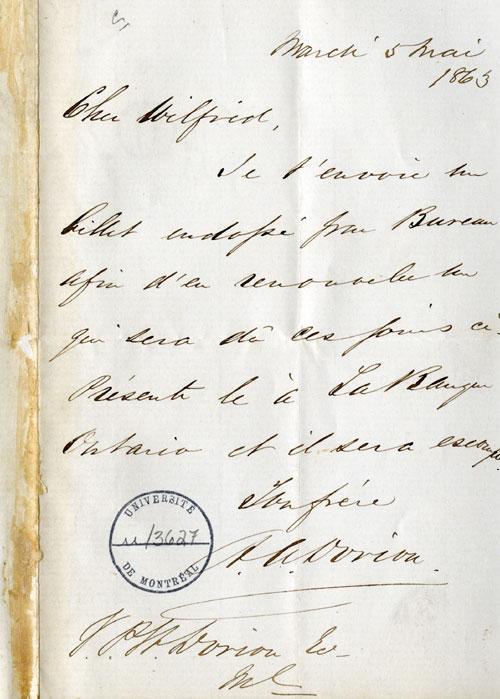 Mardi 5 Mai
1863
Cher Wilfrid,
Je t'envoie un
billet endossé par Bureau
afin d'en renouveler un
qui sera dû ces jours ci.
Présente le à La Banque
Ontario et il sera escompté
Ton frère
A. A. Dorion
UNIVERSITÉ
11/3627
DE MONTRÉAL
V. P. W. Dorion Ecr
Ml